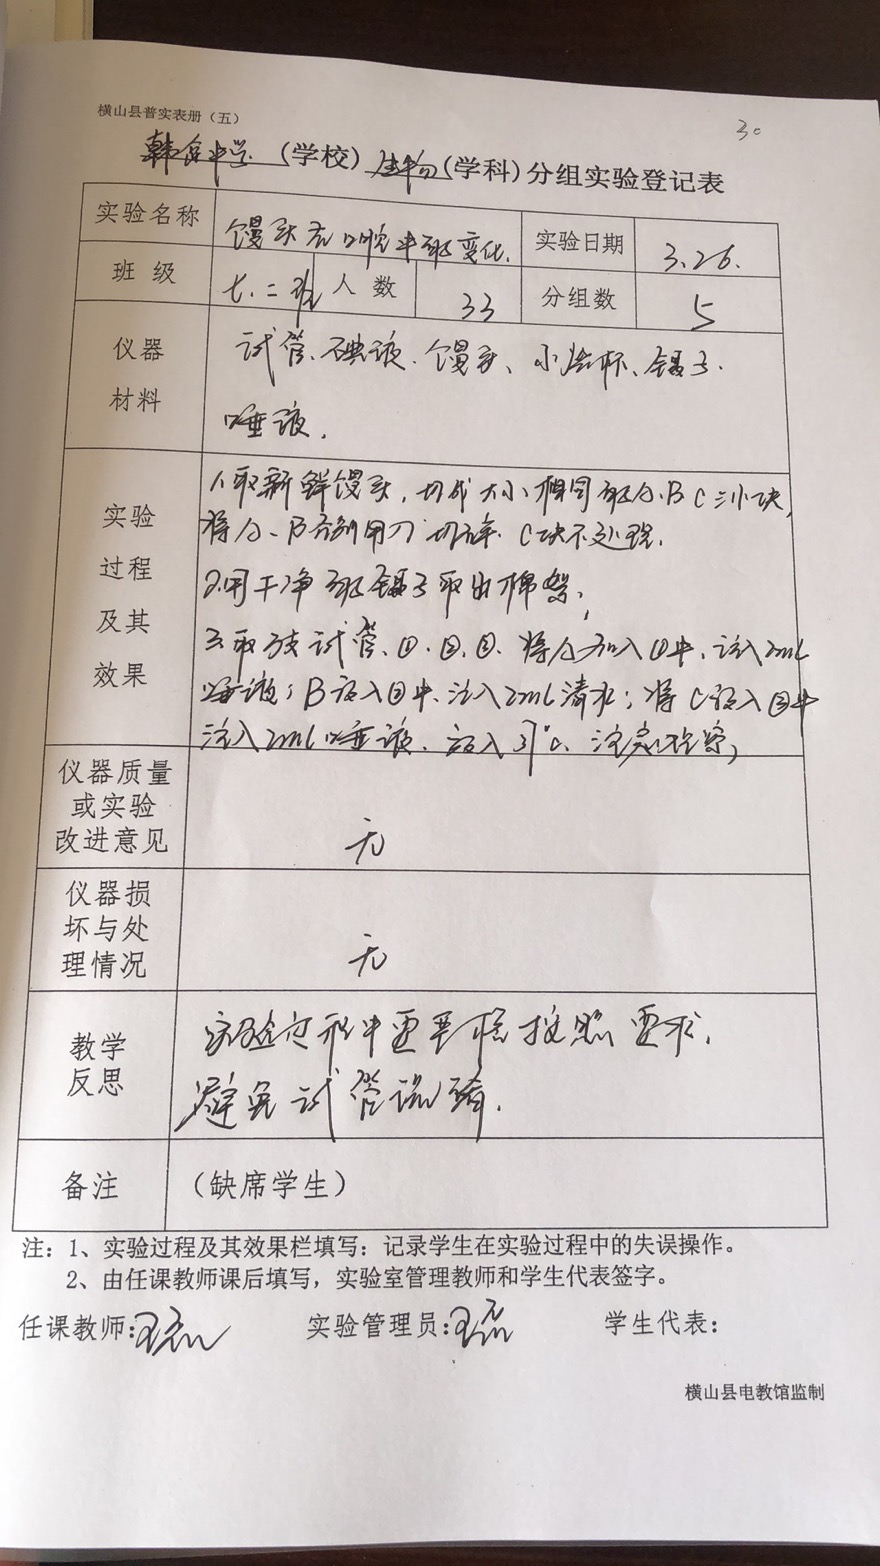 横山县普实表册（五）
30
韩岔中学（学校）生物（学科）分组实验登记表
实验名称 馒头在口腔中的变化. 实验日期 3.26.
班 级 七.二班 人 数 33 分组数 5
仪器 试管、碘液.馒头、小烧杯、镊子.
材料 唾液.
实验
过程
及其
效果
1.取新鲜馒头,切成大小相同的A.B C三小块,
将A、B分别用刀切碎.C块不处理.
2.用干净的镊子取出棉絮;
3.取3支试管、①.②.③.将A加入①中、注入2mL
唾液;B放入②中、注入2mL清水;将C放入③中
注入2mL唾液、放入37°C、
仪器质量
或实验
改进意见
无
仪器损
坏与处
理情况
无
教学
反思
实验过程中要严格按照要求.
避免试管
备注 （缺席学生）
注：1、实验过程及其效果栏填写：记录学生在实验过程中的失误操作。
2、由任课教师课后填写，实验室管理教师和学生代表签字。
任课教师: 实验管理员: 学生代表:
横山县电教馆监制